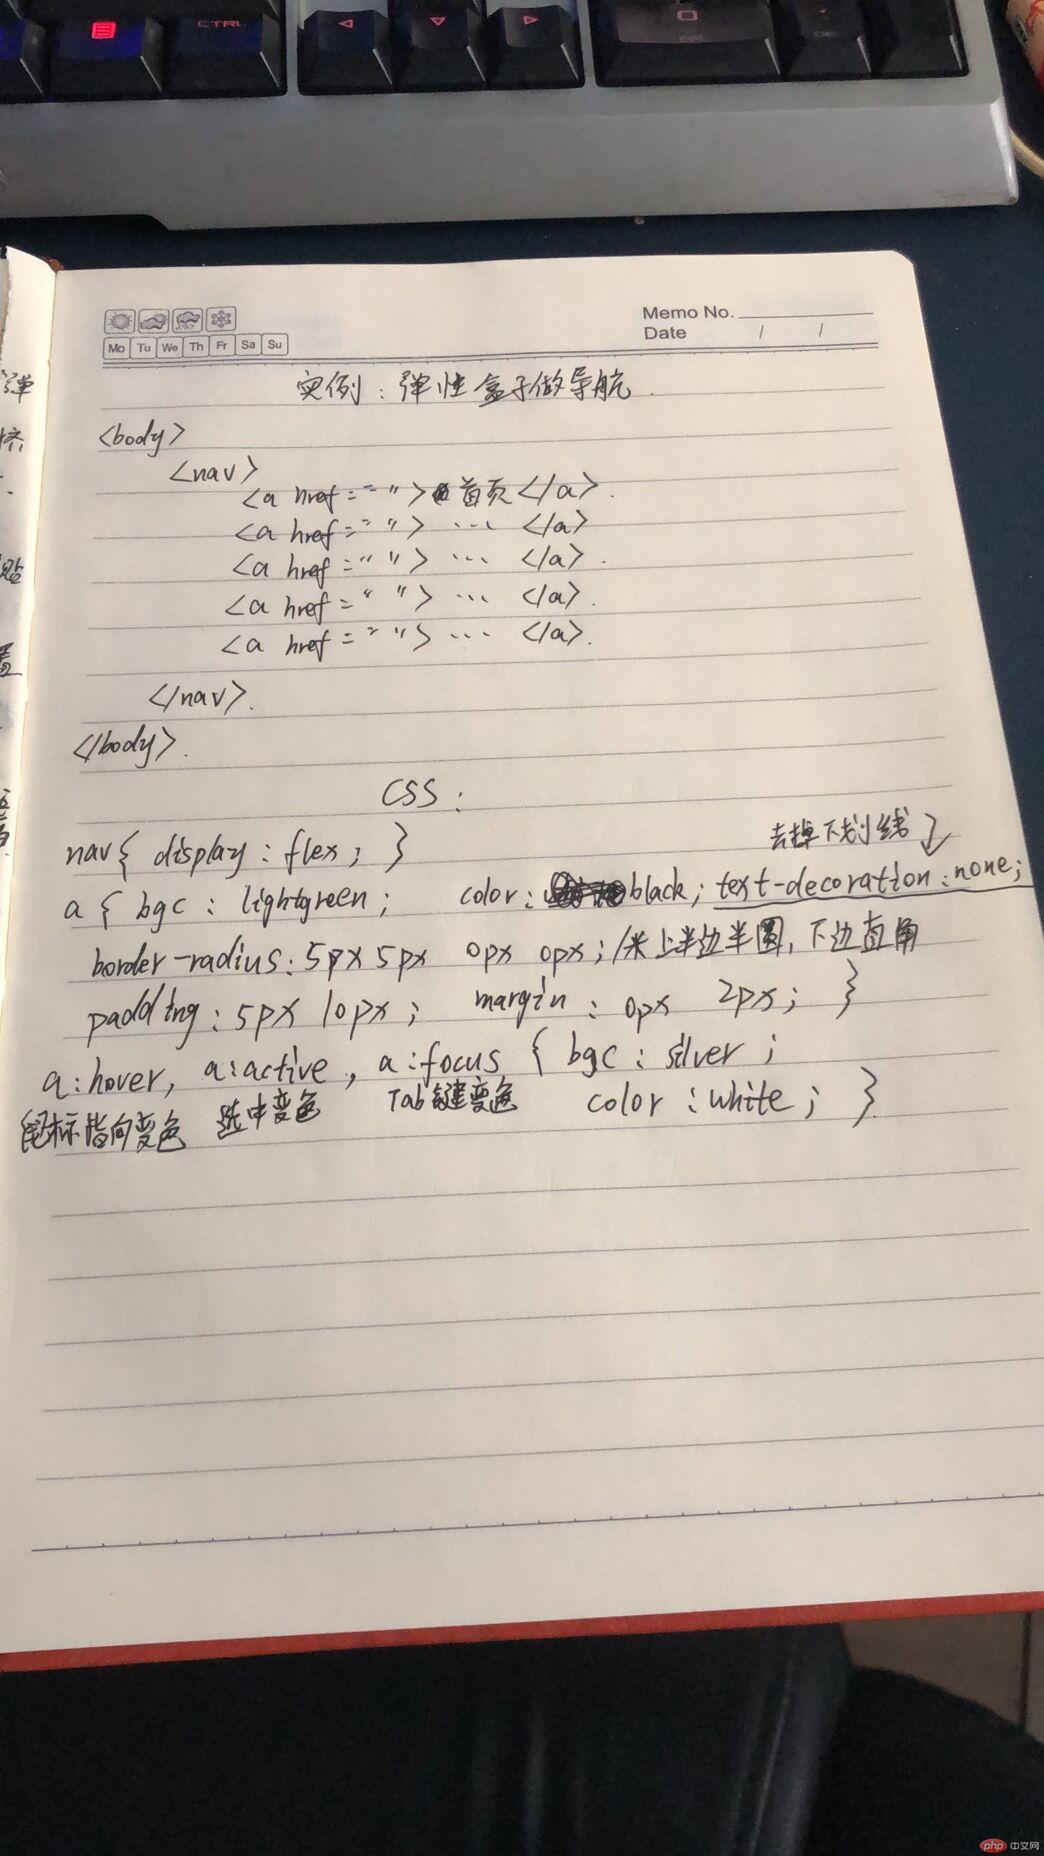 CTRL
Memo No.
Date / /
Mo Tu We Th Fr Sa Su
实例：弹性盒子做导航.
<body>
<nav>
<a href=" ">首页</a>.
<a href=" "> ... </a>
<a href=" "> ... </a>.
<a href=" "> ... </a>.
<a href=" "> ... </a>.
</nav>.
</body>.
CSS:
去掉下划线
nav{ display: flex; }
a{ bgc: lightgreen; color: black; text-decoration: none;
border-radius: 5px 5px 0px 0px; /* 上半边半圆, 下边直角
padding: 5px 10px; margin: 0px 2px; }
a:hover, a:active, a:focus { bgc: silver;
鼠标指向变色 选中变色 Tab键变色 color: white; }
弹
挤
贴
置
php 中文网